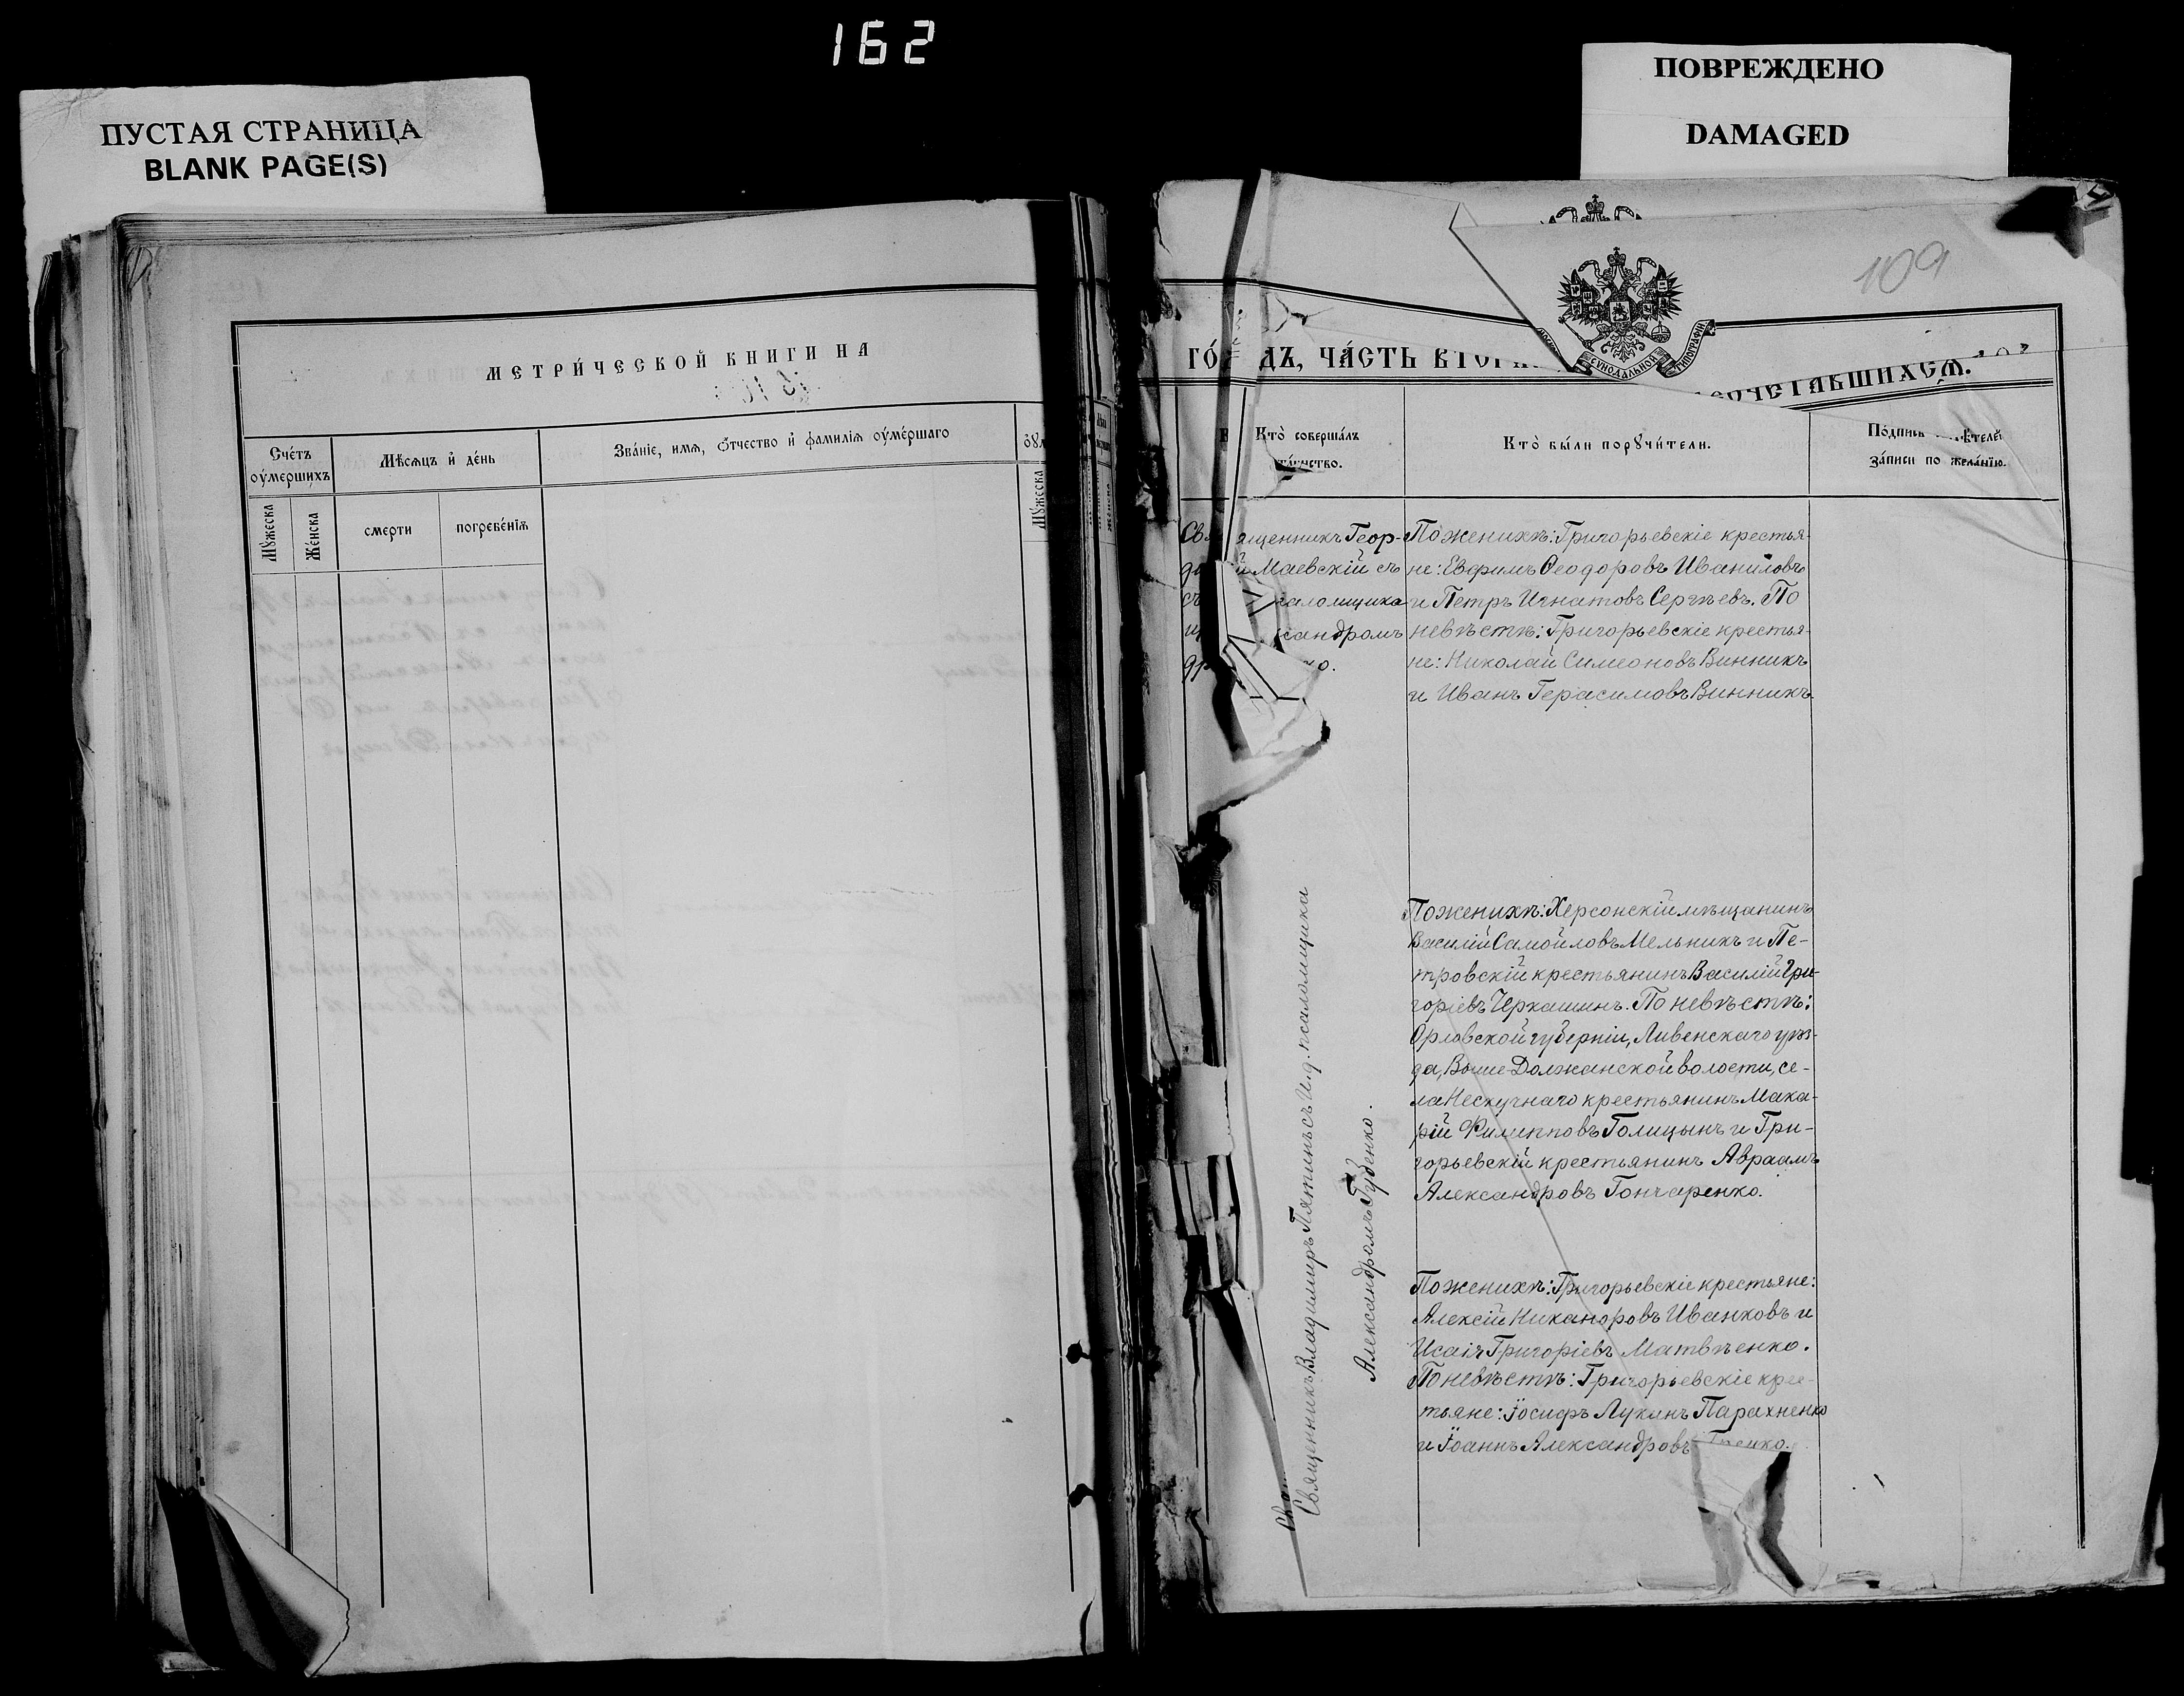 162
ПУСТАЯ СТРАНИЦА
BLANK PAGE(S)
ПОВРЕЖДЕНО
DAMAGED
МЕТРИ́ЧЕСКОЙ КНИГИ НА
Сче́тъ оу҆ме́ршихъ
Мѣсѧцъ и҆ де́нь
Зва́нїе, имѧ, ѻ҆́тчество и҆ фамилїѧ оу҆ме́ршаго
Мꙋ́жеска
Же́нска
смерти
погребе́нїѧ
Мꙋ́жеска
109
СѴНОДАЛЬНОЙ ТИПОГРАФІИ
ГО́ДЪ, ЧА́СТЬ
Кто̀ соверша́лъ
Кто̀ бы́ли порꙋчи́тели.
По́дпись
за́писи по жела́нїю.
Священникъ Геор-
Маевскій съ
По женихѣ: Григорьевскіе крестья-
не: Евфимъ Ѳеодоровъ Иваниловъ
и Петръ Игнатовъ Сергѣевъ. По
невѣстѣ: Григорьевскіе крестья-
не: Николай Симеоновъ Винникъ
и Иванъ Герасимовъ Винникъ.
Священникъ Владимиръ Пятинъ съ И.д. псаломщика
Александромъ Губенко.
По женихѣ: Херсонскій мѣщанинъ
Василій Самойловъ Мельникъ и Пе-
тровскій крестьянинъ Василій Гри-
горіевъ Черкашинъ. По невѣстѣ:
Орловской губерніи, Ливенскаго уѣз-
да, Выше-Должанской волости, се-
ла Нескучнаго крестьянинъ Мака-
рій Филипповъ Голицынъ и Гри-
горьевскій крестьянинъ Авраамъ
Александровъ Гончаренко.
По женихѣ: Григорьевскіе крестьяне:
Алексій Никаноровъ Иванковъ и
Исаія Григоріевъ Матвѣенко.
По невѣстѣ: Григорьевскіе крес-
тьяне: Іосифъ Лукинъ Парахненко
и Іоаннъ Александровъ